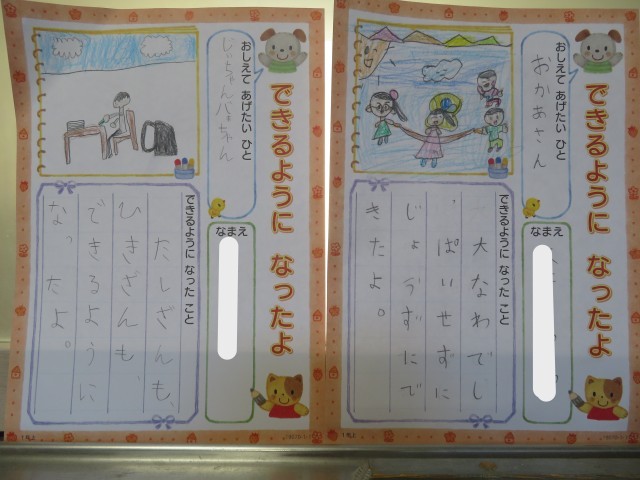 できるように なったよ
おしえて あげたい ひと
おかあさん
なまえ
できるように なった こと
大なわでし
っぱいせずに
じょうずにで
きたよ。
できるように なったよ
おしえて あげたい ひと
じいちゃんばあちゃん
なまえ
できるように なった こと
たしざんも、
ひきざんも、
できるように
なったよ。